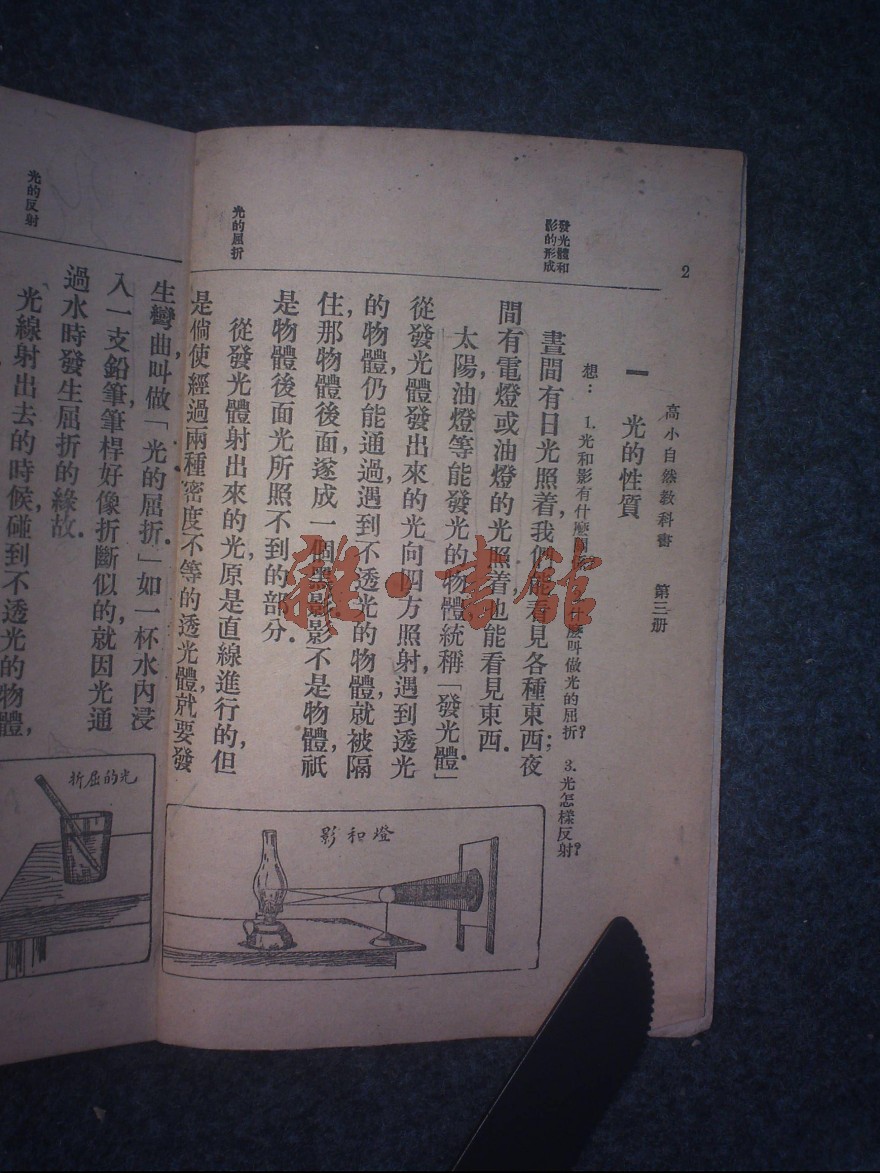 2
高小自然教科書　第三册
一　光的性質
想：　1.光和影有什麼關　　什麼叫做光的屈折？　3.光怎樣反射？
發光體和
影的形成
晝間有日光照着，我們能看見各種東西；夜
間有電燈或油燈的光照着，也能看見東西．
太陽，油燈等能發光的物體，統稱「發光體」．
從發光體發出來的光，向四方照射，遇到透光
的物體，仍能通過，遇到不透光的物體，就被隔
住，那物體後面，遂成一個黑影．影不是物體，祇
是物體後面光所照不到的部分．
光的屈折
從發光體射出來的光，原是直線進行的，但
是倘使經過兩種密度不等的透光體，就要發
燈和影
生彎曲，叫做「光的屈折」．如一杯水內浸
入一支鉛筆，筆桿好像折斷似的，就因光通
過水時發生屈折的緣故．
光的反射
光線射出去的時候，碰到不透光的物體，
光的屈折
雜·書館